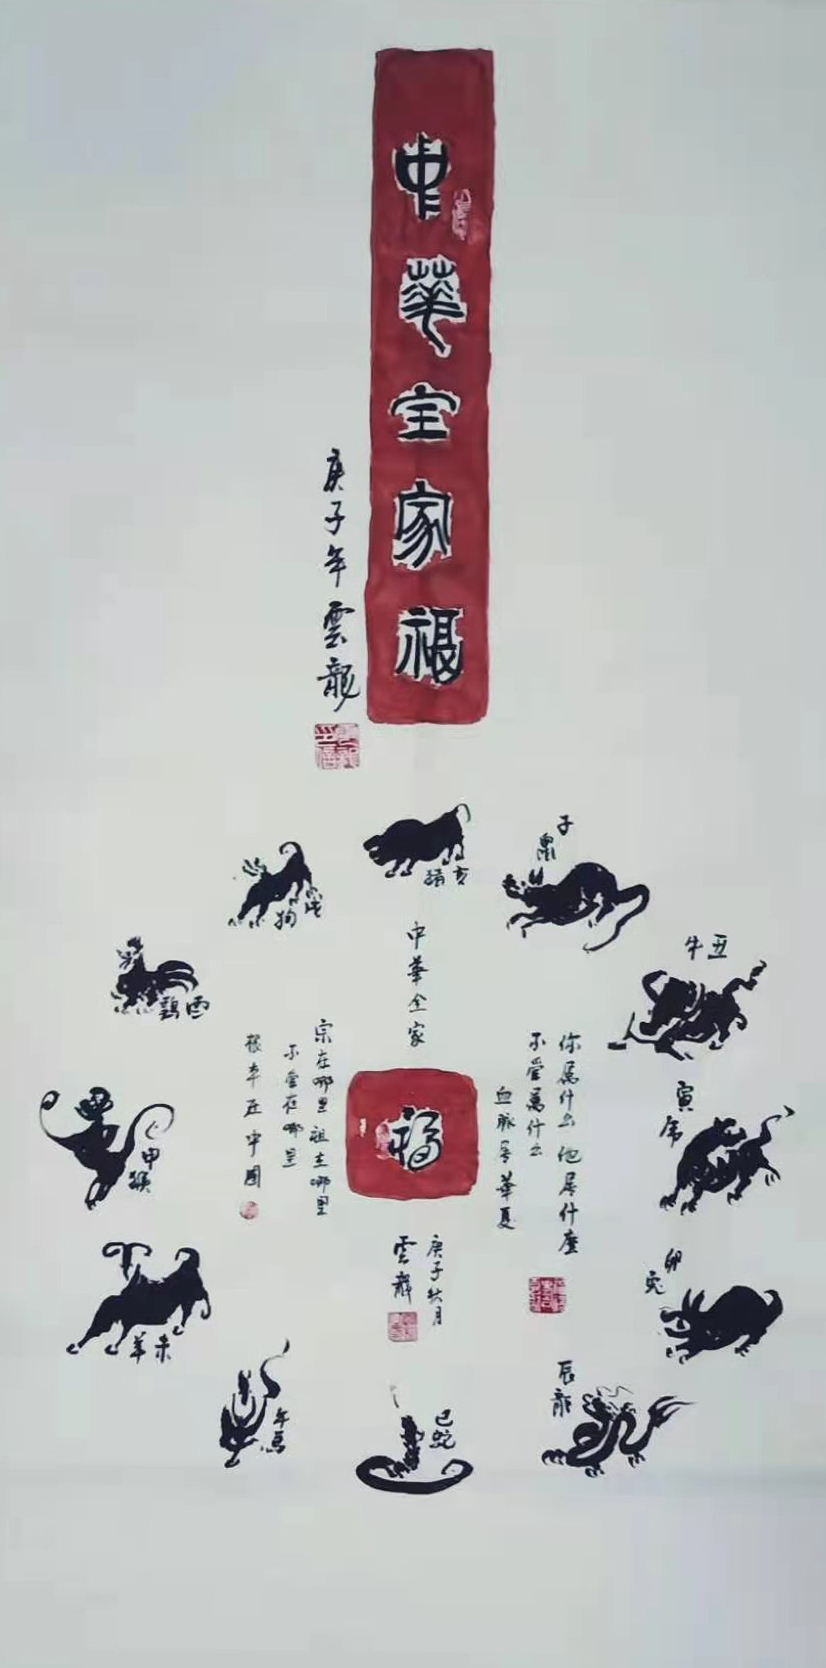 中華全家福
庚子年雲龍
子鼠
丑牛
寅虎
卯兔
辰龍
巳蛇
午馬
未羊
申猴
酉鷄
戌狗
亥猪
中華全家
福
你属什么他属什麼
不管属什么
血脉是華夏
宗在哪里祖在哪里
不管在哪里
根本在中國
庚子秋月
雲龍